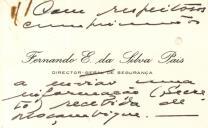 // Com respeitosos
cumprimentos
Fernando E. da Silva Pais
DIRECTOR-GERAL DE SEGURANÇA
a enviar uma
informação (secre
to) recebida de
Moçambique.-